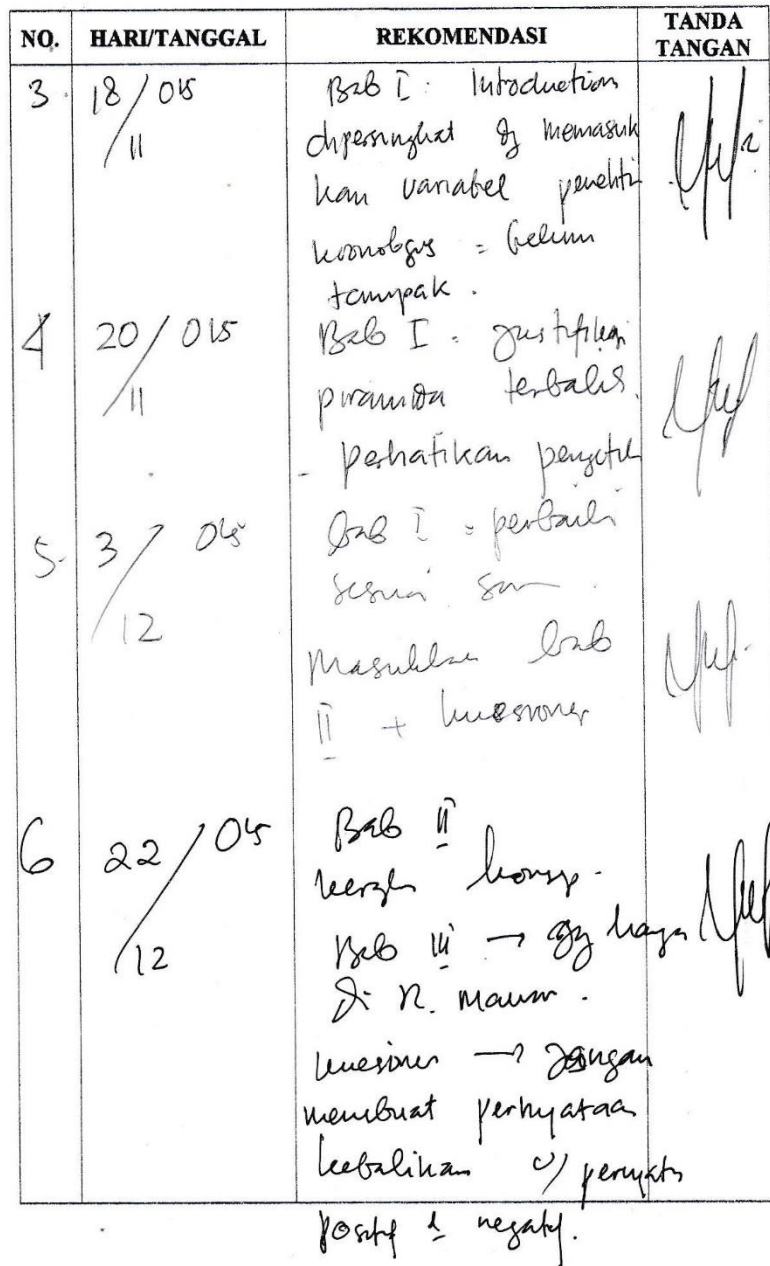 NO. HARI/TANGGAL REKOMENDASI TANDA TANGAN
3. 18/11 015 Bab I : Introduction
dipersingkat dg memasuk
kan variabel peneliti
kronologis = belum
tampak.
4 20/11 015 Bab I : justifikasi
piramida terbalik.
- perhatikan pengetik
5. 3/12 015 bab I = perbaiki
sesuai
Masukkan bab
II + kuesioner
6 22/12 015 Bab II
kerangka konsp.
Bab III → hanya
di R. Mawar.
kuesioner → jangan
membuat pernyataan
kebalikan u/ pernyata
positif & negatif.